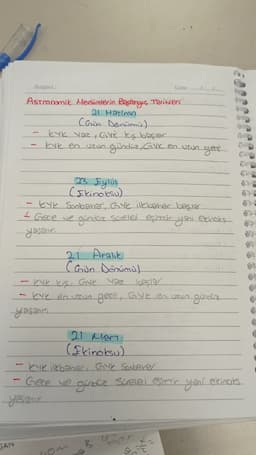 Astronomik Mevsimlerin Başlangıç Tarihleri
21 Haziran
(Gün Dönümü)
- KYK Yaz, GYK kış başlar
- KYK en uzun gündüz, GYK en uzun gece
23 Eylül
(Ekinoksu)
- KYK Sonbahar, GYK ilkbahar başlar
- Gece ve gündüz süreleri eşittir yani ekinoks
yaşanır
21 Aralık
(Gün Dönümü)
- KYK kış, GYK Yaz başlar
- KYK en uzun gece, GYK en uzun gündüz
yaşanır
21 Mart
(Ekinoksu)
- KYK ilkbahar, GYK Sonbahar
- Gece ve gündüz süreleri eşittir yani ekinoks
yaşanır